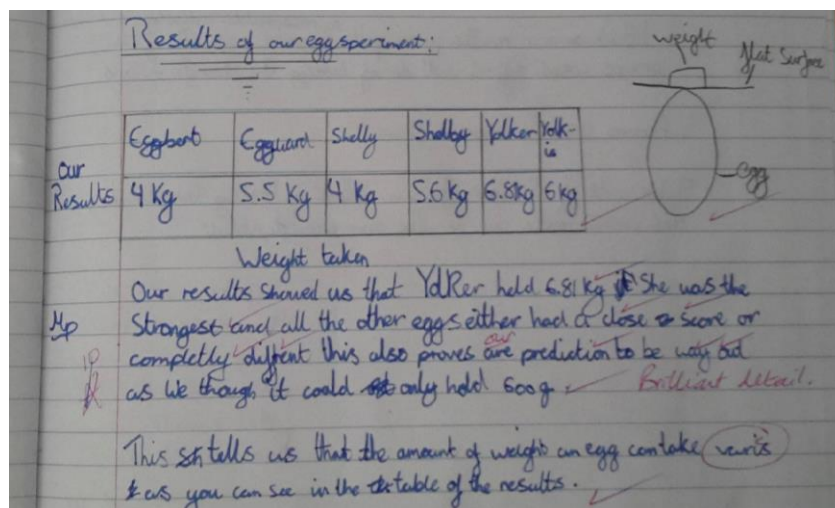 Results of our eggsperiment:
weight
flat surface
Eggbert Egguard Shelly Shelby Yolker Yolk-
is
Our
Results 4 Kg 5.5 Kg 4 Kg 5.6 Kg 6.8kg 6kg
egg
Weight taken
Our results showed us that Yolker held 6.81 Kg She was the
Strongest and all the other eggs either had a close score or
our
completly diffrent this also proves are prediction to be way out
as we though it could only held 600g.
Brilliant detail.
This tells us that the amount of weight an egg can take varis
as you can see in the table of the results.